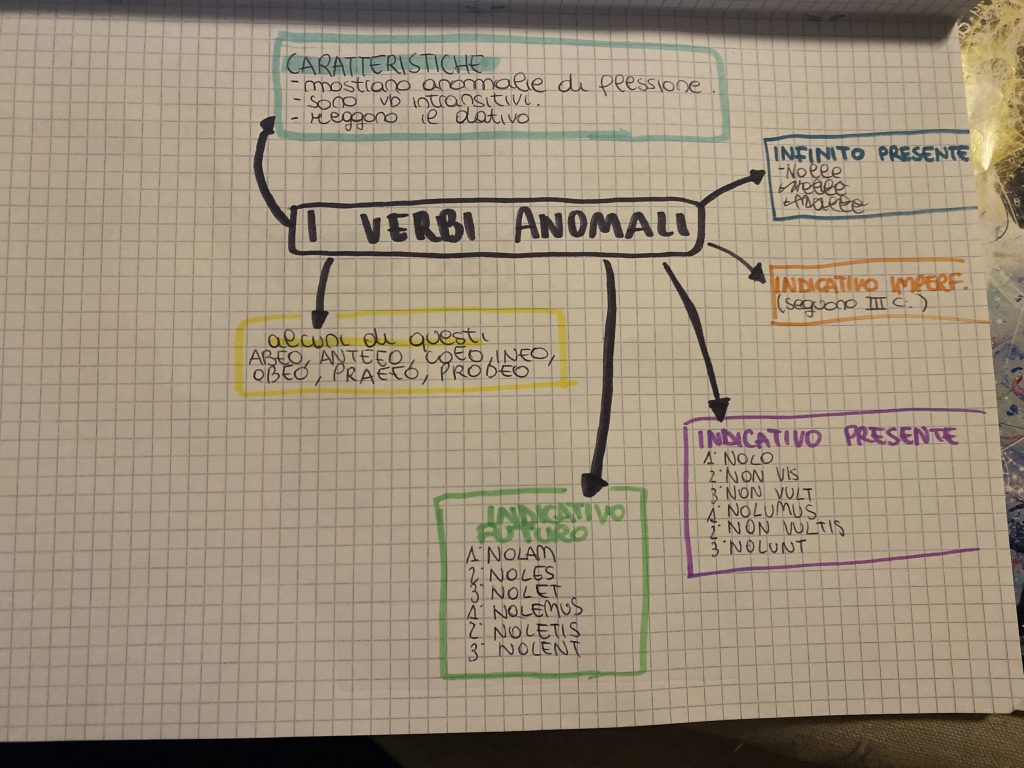 CARATTERISTICHE
- mostrano anomalie di flessione.
- sono vb intransitivi.
- reggono il dativo
INFINITO PRESENTE
- Nolle
I VERBI ANOMALI
INDICATIVO IMPERF.
(seguono III C.)
alcuni di questi
ABEO, ANTEEO, COEO, INEO,
OBEO, PRAEEO, PRODEO
INDICATIVO PRESENTE
1° NOLO
2° NON VIS
3° NON VULT
1° NOLUMUS
2° NON VULTIS
3° NOLUNT
INDICATIVO
FUTURO
1° NOLAM
2° NOLES
3° NOLET
1° NOLEMUS
2° NOLETIS
3° NOLENT